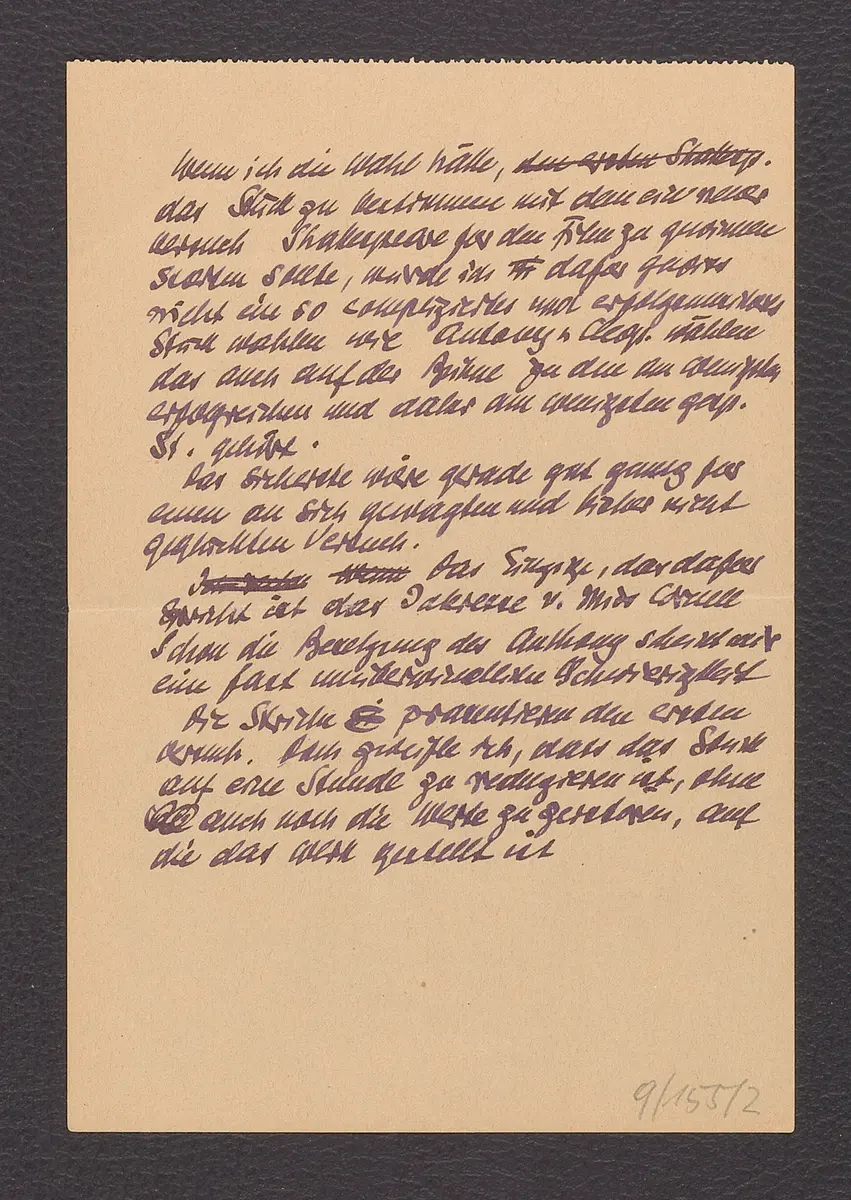 Wenn ich die Wahl hätte, den ersten Shakesp.
das Stück zu bestimmen mit dem ein neuer
Versuch Shakespeare für den Film zu gewinnen
starten sollte, würde ich dafür
nicht ein so compliziertes und
Stück wählen wie Antony u Cleop. wählen
das auch auf der Bühne zu den am wenigsten
erfolgreichen und daher am wenigsten gesp.
St. gehört.
Das Sicherste wäre gerade gut genug für
einen an sich gewagten und bisher nicht
geglückten Versuch.
wenn Das Einzige, das dafür
spricht ist das Interesse v. Miss Cornell
Schon die Besetzung des Anthony scheint mir
eine fast unüberwindliche Schwierigkeit
Die Striche präsentieren den ersten
Versuch. Dann zweifle ich, dass das Stück
auf eine Stunde zu reduzieren ist, ohne
auch noch die Werte zu zerstören, auf
die das Werk gestellt ist
9/155/2